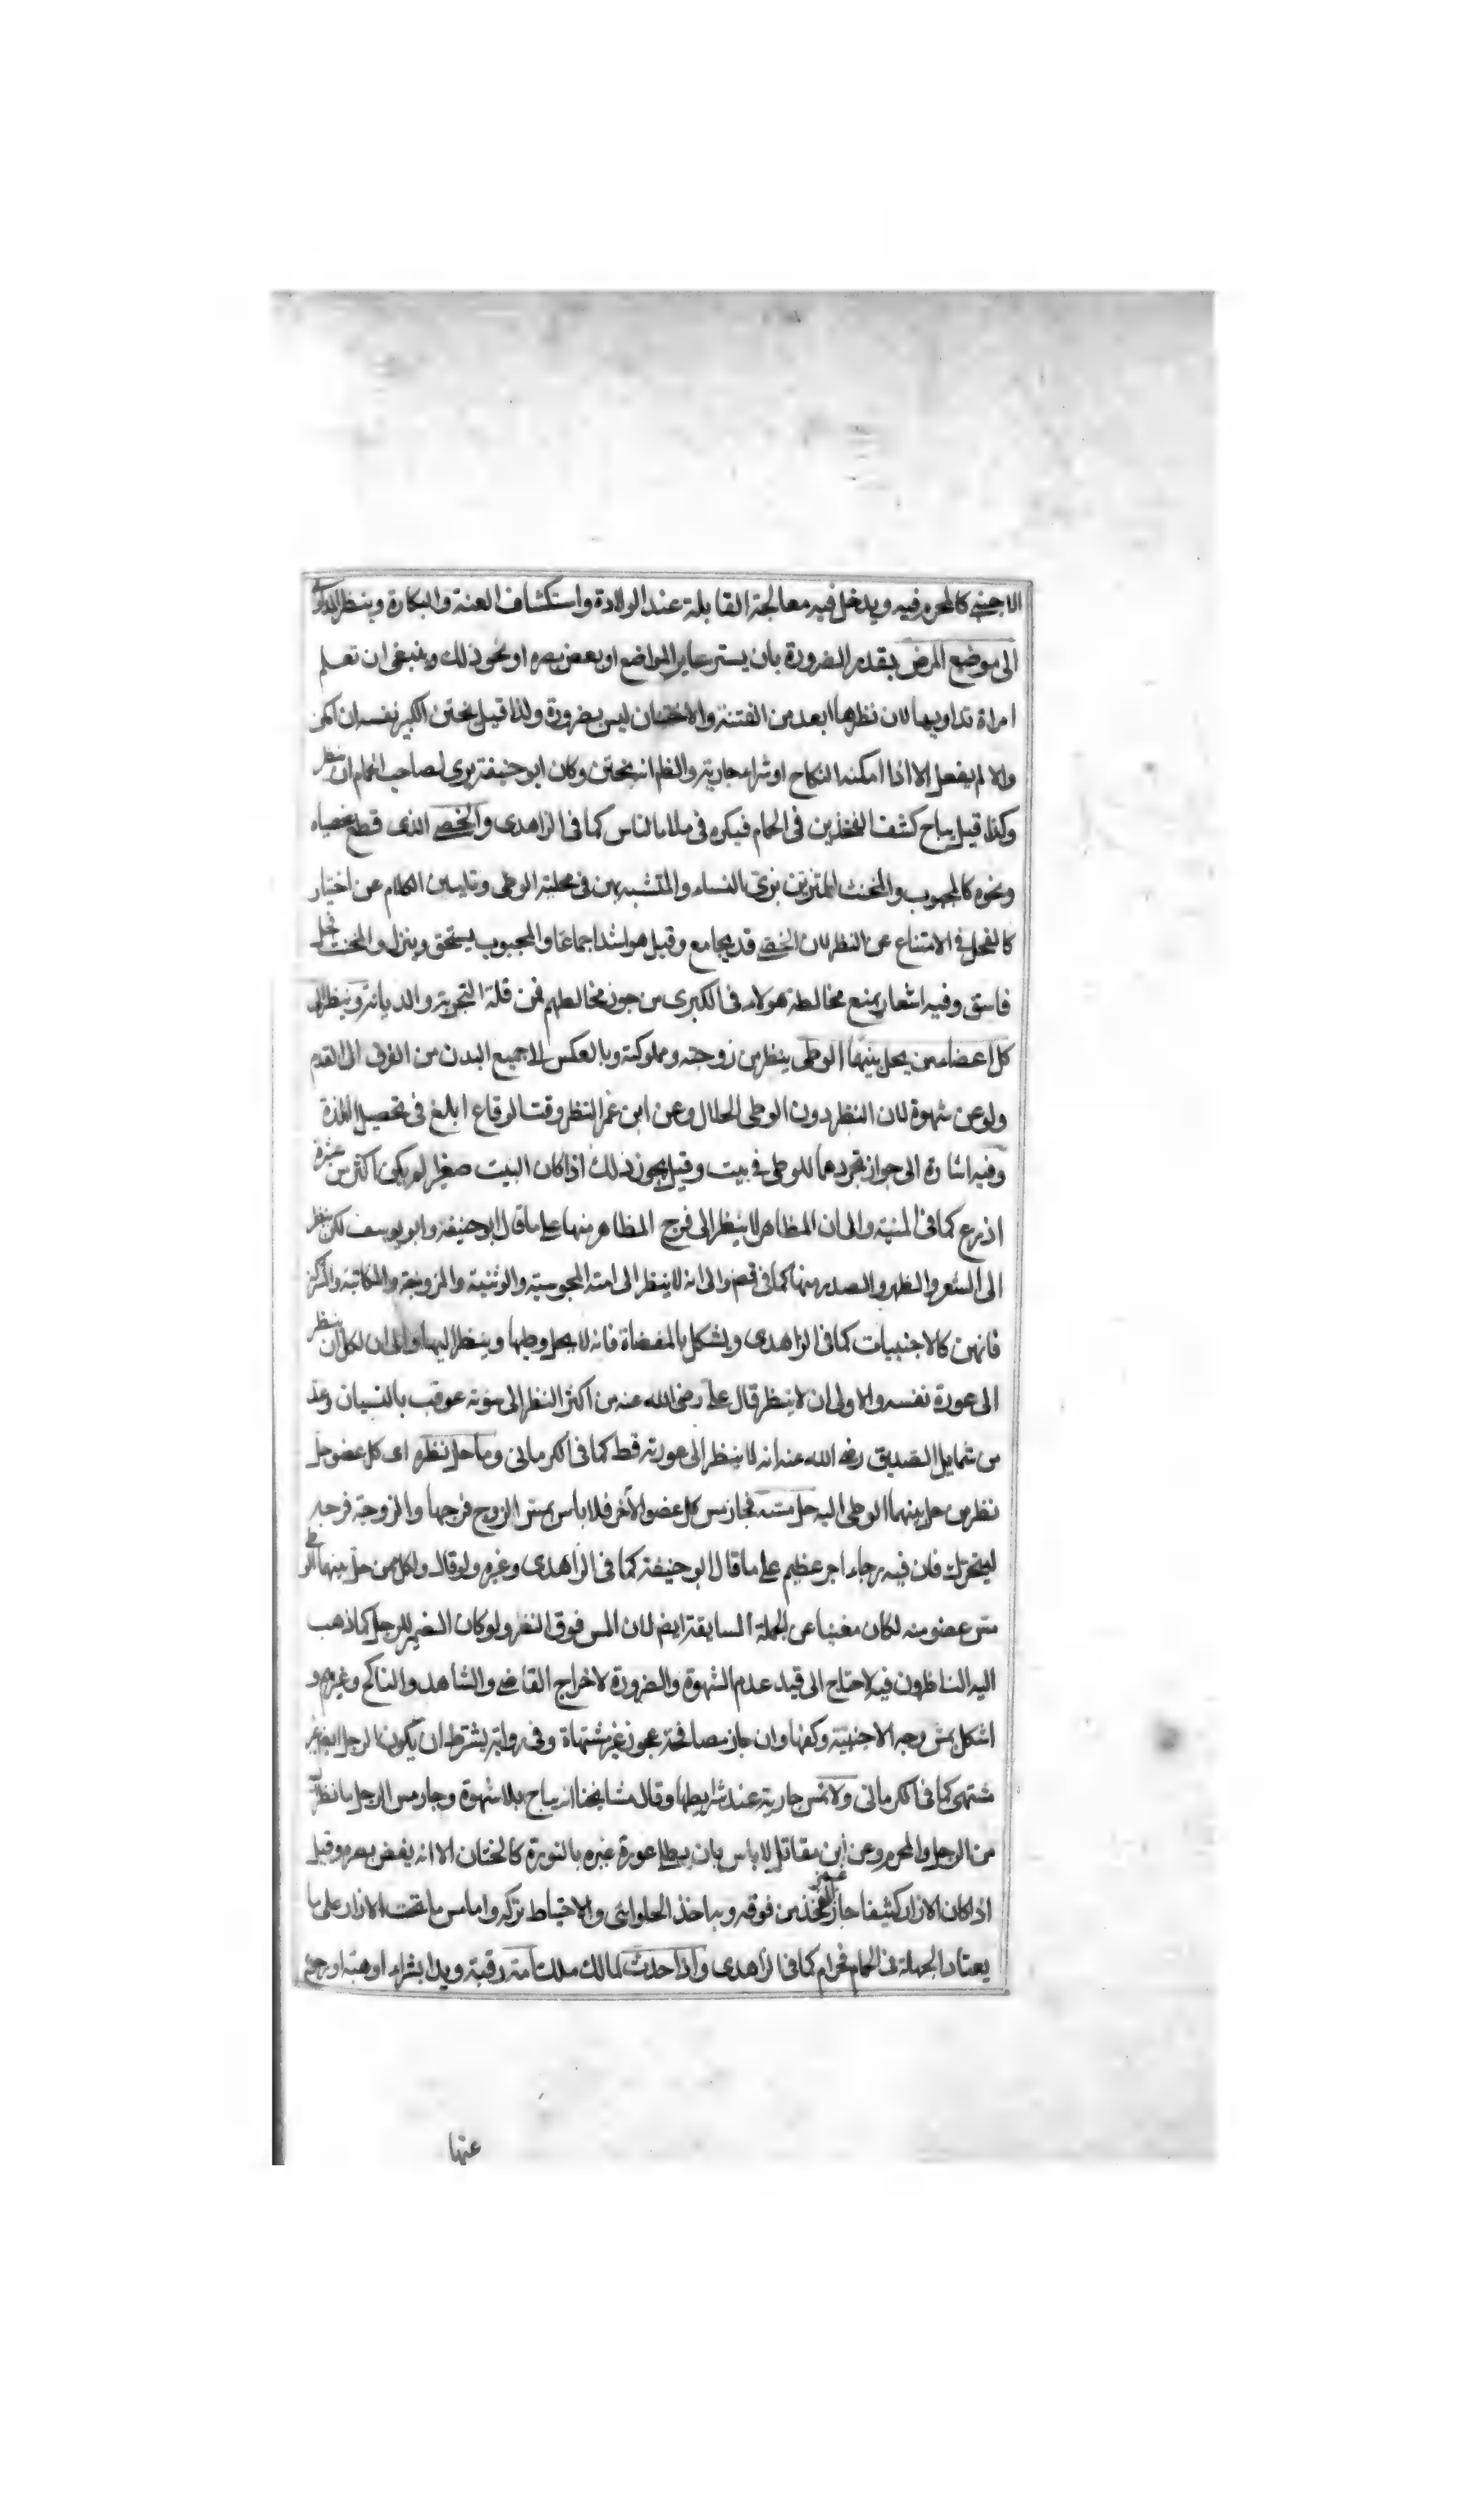 الاجنبي كالمحرم فيه ويدخل فيه معالجة القابلة عند الولادة واستكشاف العنة والبكارة وينظر المداوي
الى موضع المرض بقدر الضرورة بان يستر ساير المواضع او بعض بصره او نحو ذلك وينبغي ان تعلم
امراة تداويها لان نظرها ابعد من الفتنة والاختتان ليس بضرورة ولذا قيل يختن الكبير نفسه ان امكن
والا لم يفعل الا اذا امكنه النكاح او شراء جارية والظ انه يختن وكان ابو حنيفة يرى لصاحب الحمام ان ينظر
وكذا قيل يباح كشف الفخذين في الحمام فيكره في ملاء الناس كما في الزاهدي والخصي الذي قطع خصياه
ونحوه كالمجبوب والمخنث المتزين بزي النساء والمتشبه بهن في محلية الوطي وتليين الكلام عن اختيار
كالفحل في الامتناع عن النظر لان الخصي قد يجامع وقيل هو اشد جماعا والمجبوب يستحق وينزل والمخنث فحل
فاسق وفيه اشعار بمنع مخالطة هولاء في الكبرى من جوز مخالطهم فمن قلة التجربة والديانة وينظر الى
كل اعضاء من يحل بينهما الوطي ينظر من زوجته ومملوكته وبالعكس لا جميع البدن من الفرق الى القدم
ولو عن شهوة لان النظر دون الوطي الحلال وعن ابن عمر النظر وقت الوقاع ابلغ في تحصيل اللذة
وفيه اشارة الى جواز تجردهما للوطي في بيت وقيل يجوز ذلك اذا كان البيت صغيرا لم يكن اكثر من عشرة
اذرع كما في المنية والى ان المظاهر لا ينظر الى فرج المظاهر منها على ما قال ابو حنيفة وابو يوسف لكن ينظر
الى الشعر والظهر والصدر منها كما في قض والى انه لا ينظر الى امته المجوسية والوثنية والمزوجة والمكاتبة والمشتركة
فانهن كالاجنبيات كما في الزاهدي ويشكل بالمفضاة فانه لا يحل وطيها وينظر اليها والى ان لكل ان ينظر
الى عورة نفسه والاولى ان لا ينظر قال علي رضي الله عنه من اكثر النظر الى سوته عوقب بالنسيان وعد
من شمايل الصديق رضي الله عنه انه لا ينظر الى عورته قط كما في الكرماني وما حل نظره اى كل عضو حل
نظر من حل بينهما الوطي اليه حل مسه فجاز مس كل عضو الاخر فلا باس بمس الزوج فرجها والزوجة فرجه
ليتحرك فان فيه رجاء اجر عظيم على ما قال ابو حنيفة كما في الزاهدي وغيره ولو قال ولكل ممن حل بينهما الوطي
مس عضو منه لكان مغنيا عن الجملة السابقة ايضم لان المس فوق النظر ولو كان الضمير للرجل كما ذهب
اليه الناظرون فيه لاحتاج الى قيد عدم الشهوة والضرورة لاخراج القاضي والشاهد والناكح وغيرهم و
اشكل بمس وجه الاجنبية وكفها وان جاز مصافحة عجوز غير مشتهاة وفي رواية يشترط ان يكون الرجل ايضم غير
مشتهى كما في الكرماني ولا تمس جارية عند شرايها وقال مشايخنا انه يباح بلا شهوة وجاز مس الرجل ما نظر
من الرجل والمحرم وعن ابن مقاتل لا باس بان يطلي عورة غيره بالنورة كالختان الا انه يغض بصره وقيل
اذا كان الازار كثيفا جاز غمز الفخذ من فوقه وبه اخذ الحلواني والاحتياط تركه واما مس ما تحت الازار على ما
يعتاد الجهلة في الحمام فحرام كما في الزاهدي واذا حدث لمالك ملك امة رقبة ويدا بشراء او هبة او رجع
عنها